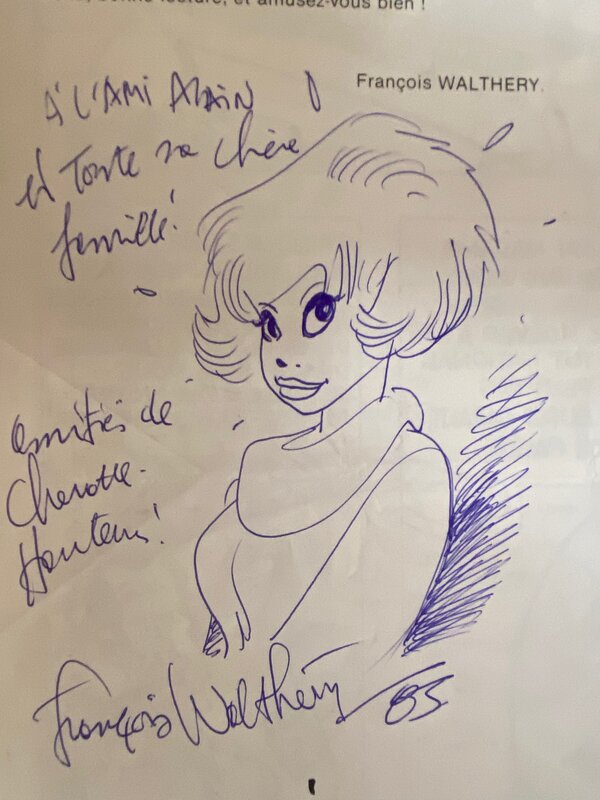 bonne lecture, et amusez-vous bien !
François WALTHERY.
À L'AMI ALAIN
et Toute sa chère
famille!
amitiés de
Cheratte-
Hauteurs!
François Walthéry 85